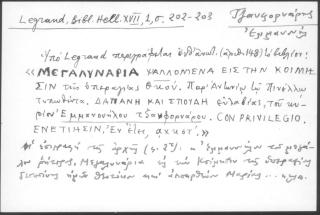 Legrand, Bibl. Hell. XVII, 1, σ. 202-203
Τζανφορνάρης
Ἐμμανουὴλ
Ὑπὸ Legrand περιγράφεται (ἀριθ. 148) τὸ βιβλίον:
«ΜΕΓΑΛΥΝΑΡΙΑ ΨΑΛΛΟΜΕΝΑ ΕΙΣ ΤΗΝ ΚΟΙΜΗ
ΣΙΝ τῆς ὑπεραγίας Θκου. Παρ' Ἀντωνίῳ τῷ Πινέλλῳ
τυπωθέντα, ΔΑΠΑΝΗ ΚΑΙ ΣΠΟΥΔΗ εὐλαβείας, τοῦ κυ-
ρίου Ἐμμανουήλου τζανφορνάρου. CON PRIVILEGIO.
ΕΝΕΤΙΗΣΙΝ, Ἐν ἔτει, αχκστ'.»
ἀρχῇ (σ. 2α)
Μεγαλυνάρια εἰς τὴν Κοίμησιν τῆς ὑπεραγίας
δεσποίνης ἡμῶν Θεοτόκου καὶ ἀειπαρθένου Μαρίας...